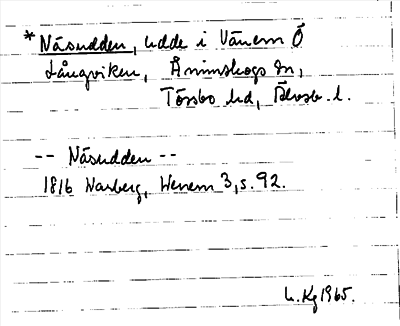 * Näsudden, udde i Vänern Ö
Långviken, Ånimskogs sn,
Tössbo hd, Älvsb. l.
-- Näsudden --
1816 Warberg, Wenern 3, s. 92.
L. Kg 1965.